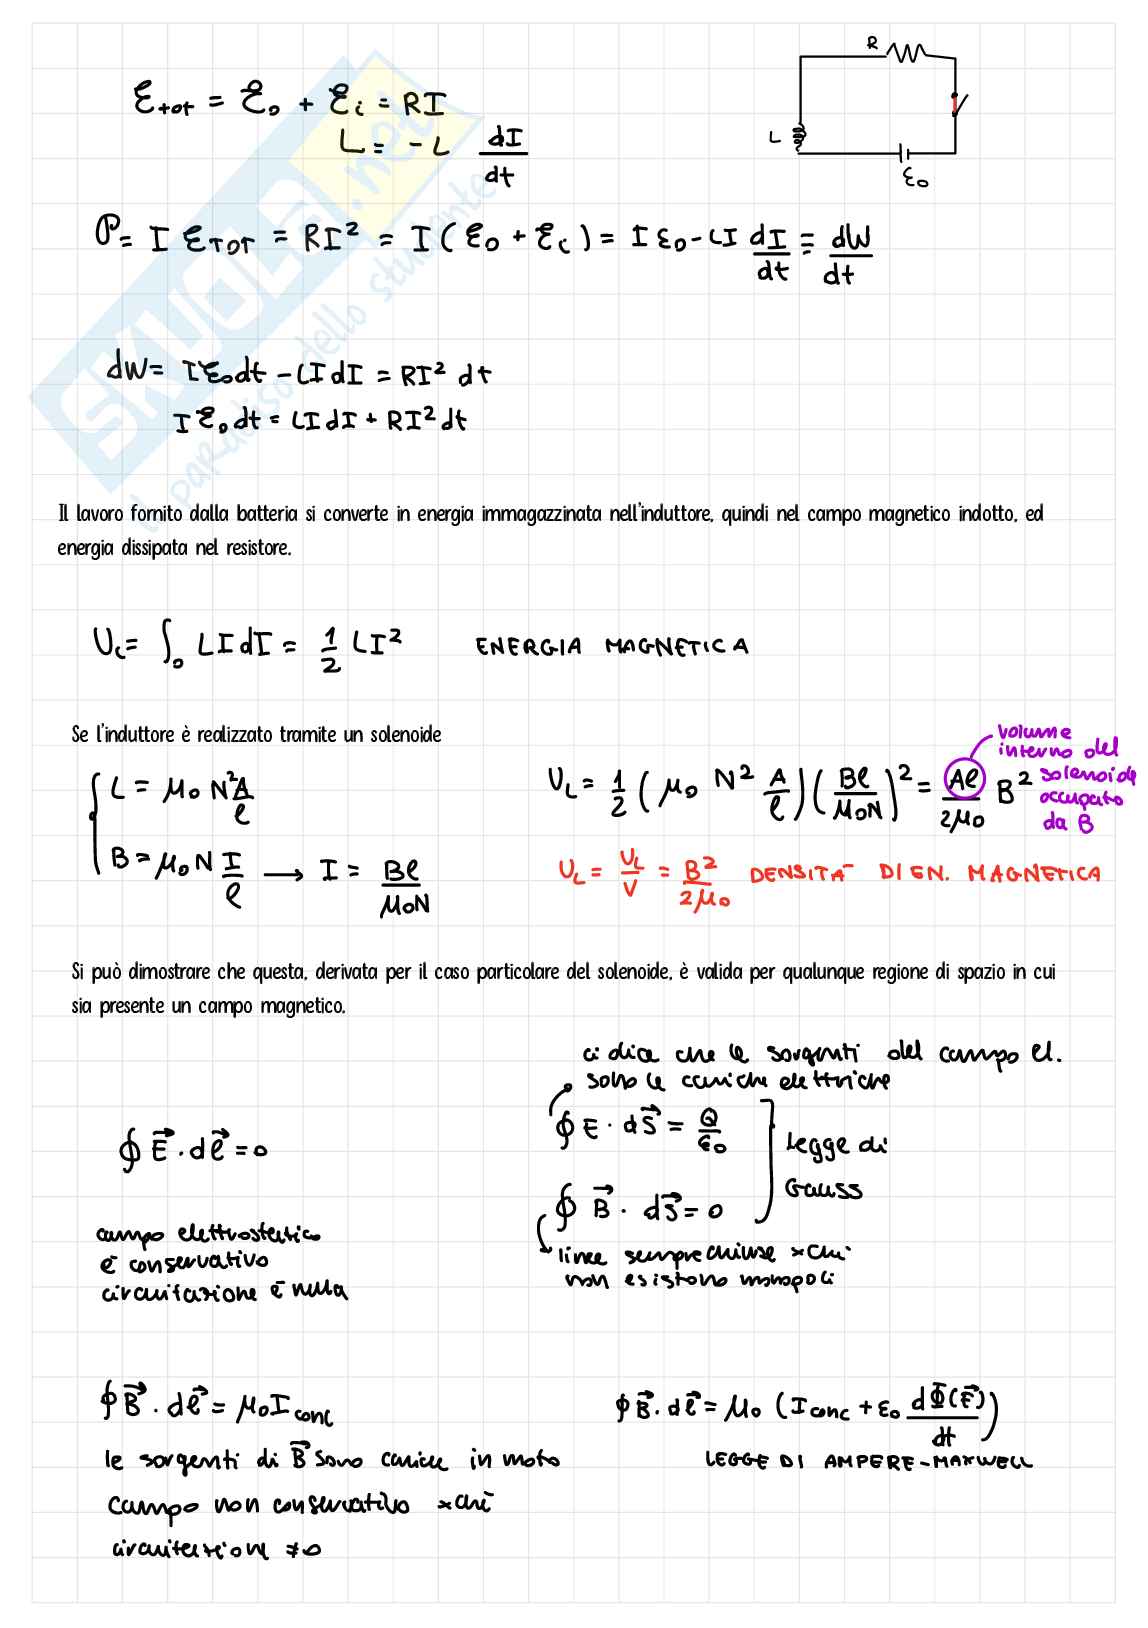 R
L
ε₀
ε_tot = ε₀ + ε_i = RI
L = - L dI/dt
P = I ε_TOT = RI² = I (ε₀ + ε_i) = I ε₀ - LI dI/dt = dW/dt
dW = I ε₀ dt - LI dI = RI² dt
I ε₀ dt = LI dI + RI² dt
SKUOLA.net
il paradiso dello studente
Il lavoro fornito dalla batteria si converte in energia immagazzinata nell'induttore, quindi nel campo magnetico indotto, ed
energia dissipata nel resistore.
U_L = ∫₀ LI dI = 1/2 LI² ENERGIA MAGNETICA
Se l'induttore è realizzato tramite un solenoide
L = μ₀ N² A/ℓ
B = μ₀ N I/ℓ → I = Bℓ/μ₀N
U_L = 1/2 (μ₀ N² A/ℓ) (Bℓ/μ₀N)² = Aℓ/2μ₀ B²
volume
interno del
solenoide
occupato
da B
U_L = U_L/V = B²/2μ₀ DENSITÀ DI EN. MAGNETICA
Si può dimostrare che questa, derivata per il caso particolare del solenoide, è valida per qualunque regione di spazio in cui
sia presente un campo magnetico.
ci dice che le sorgenti del campo el.
sono le cariche elettriche
∮ E⃗ · dℓ⃗ = 0
∮ E · dS⃗ = Q/ε₀
∮ B⃗ · dS⃗ = 0
legge di
Gauss
campo elettrostatico
è conservativo
circuitazione è nulla
linee sempre chiuse xchè
non esistono monopoli
∮ B⃗ · dℓ⃗ = μ₀ I conc
le sorgenti di B⃗ sono cariche in moto
campo non conservativo xchè
circuitazione ≠ 0
∮ B⃗ · dℓ⃗ = μ₀ (I conc + ε₀ dΦ(E⃗)/dt)
LEGGE DI AMPERE-MAXWELL